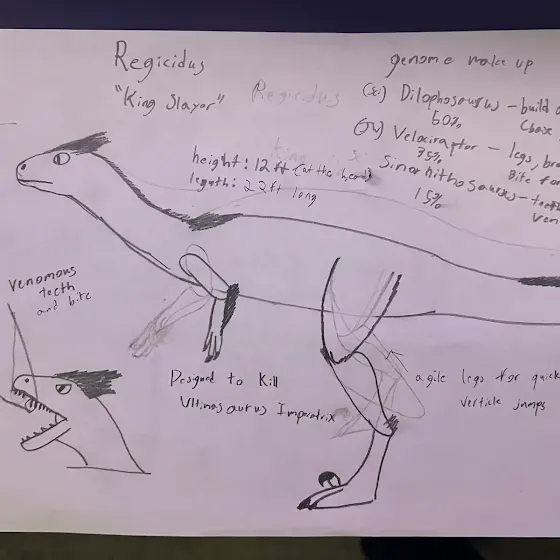 Regicidus
"King Slayer"
Regicidus
genome make up
Dilophosaurus - build
50%
Velociraptor - legs,
35%
Bite
Sinornithosaurus - teeth
15%
ven
height: 12 ft (at the head)
length: 22 ft long
venomous
teeth
and bite
Designed to Kill
Ultimasaurus Imperatrix
agile legs for quick
verticle jumps